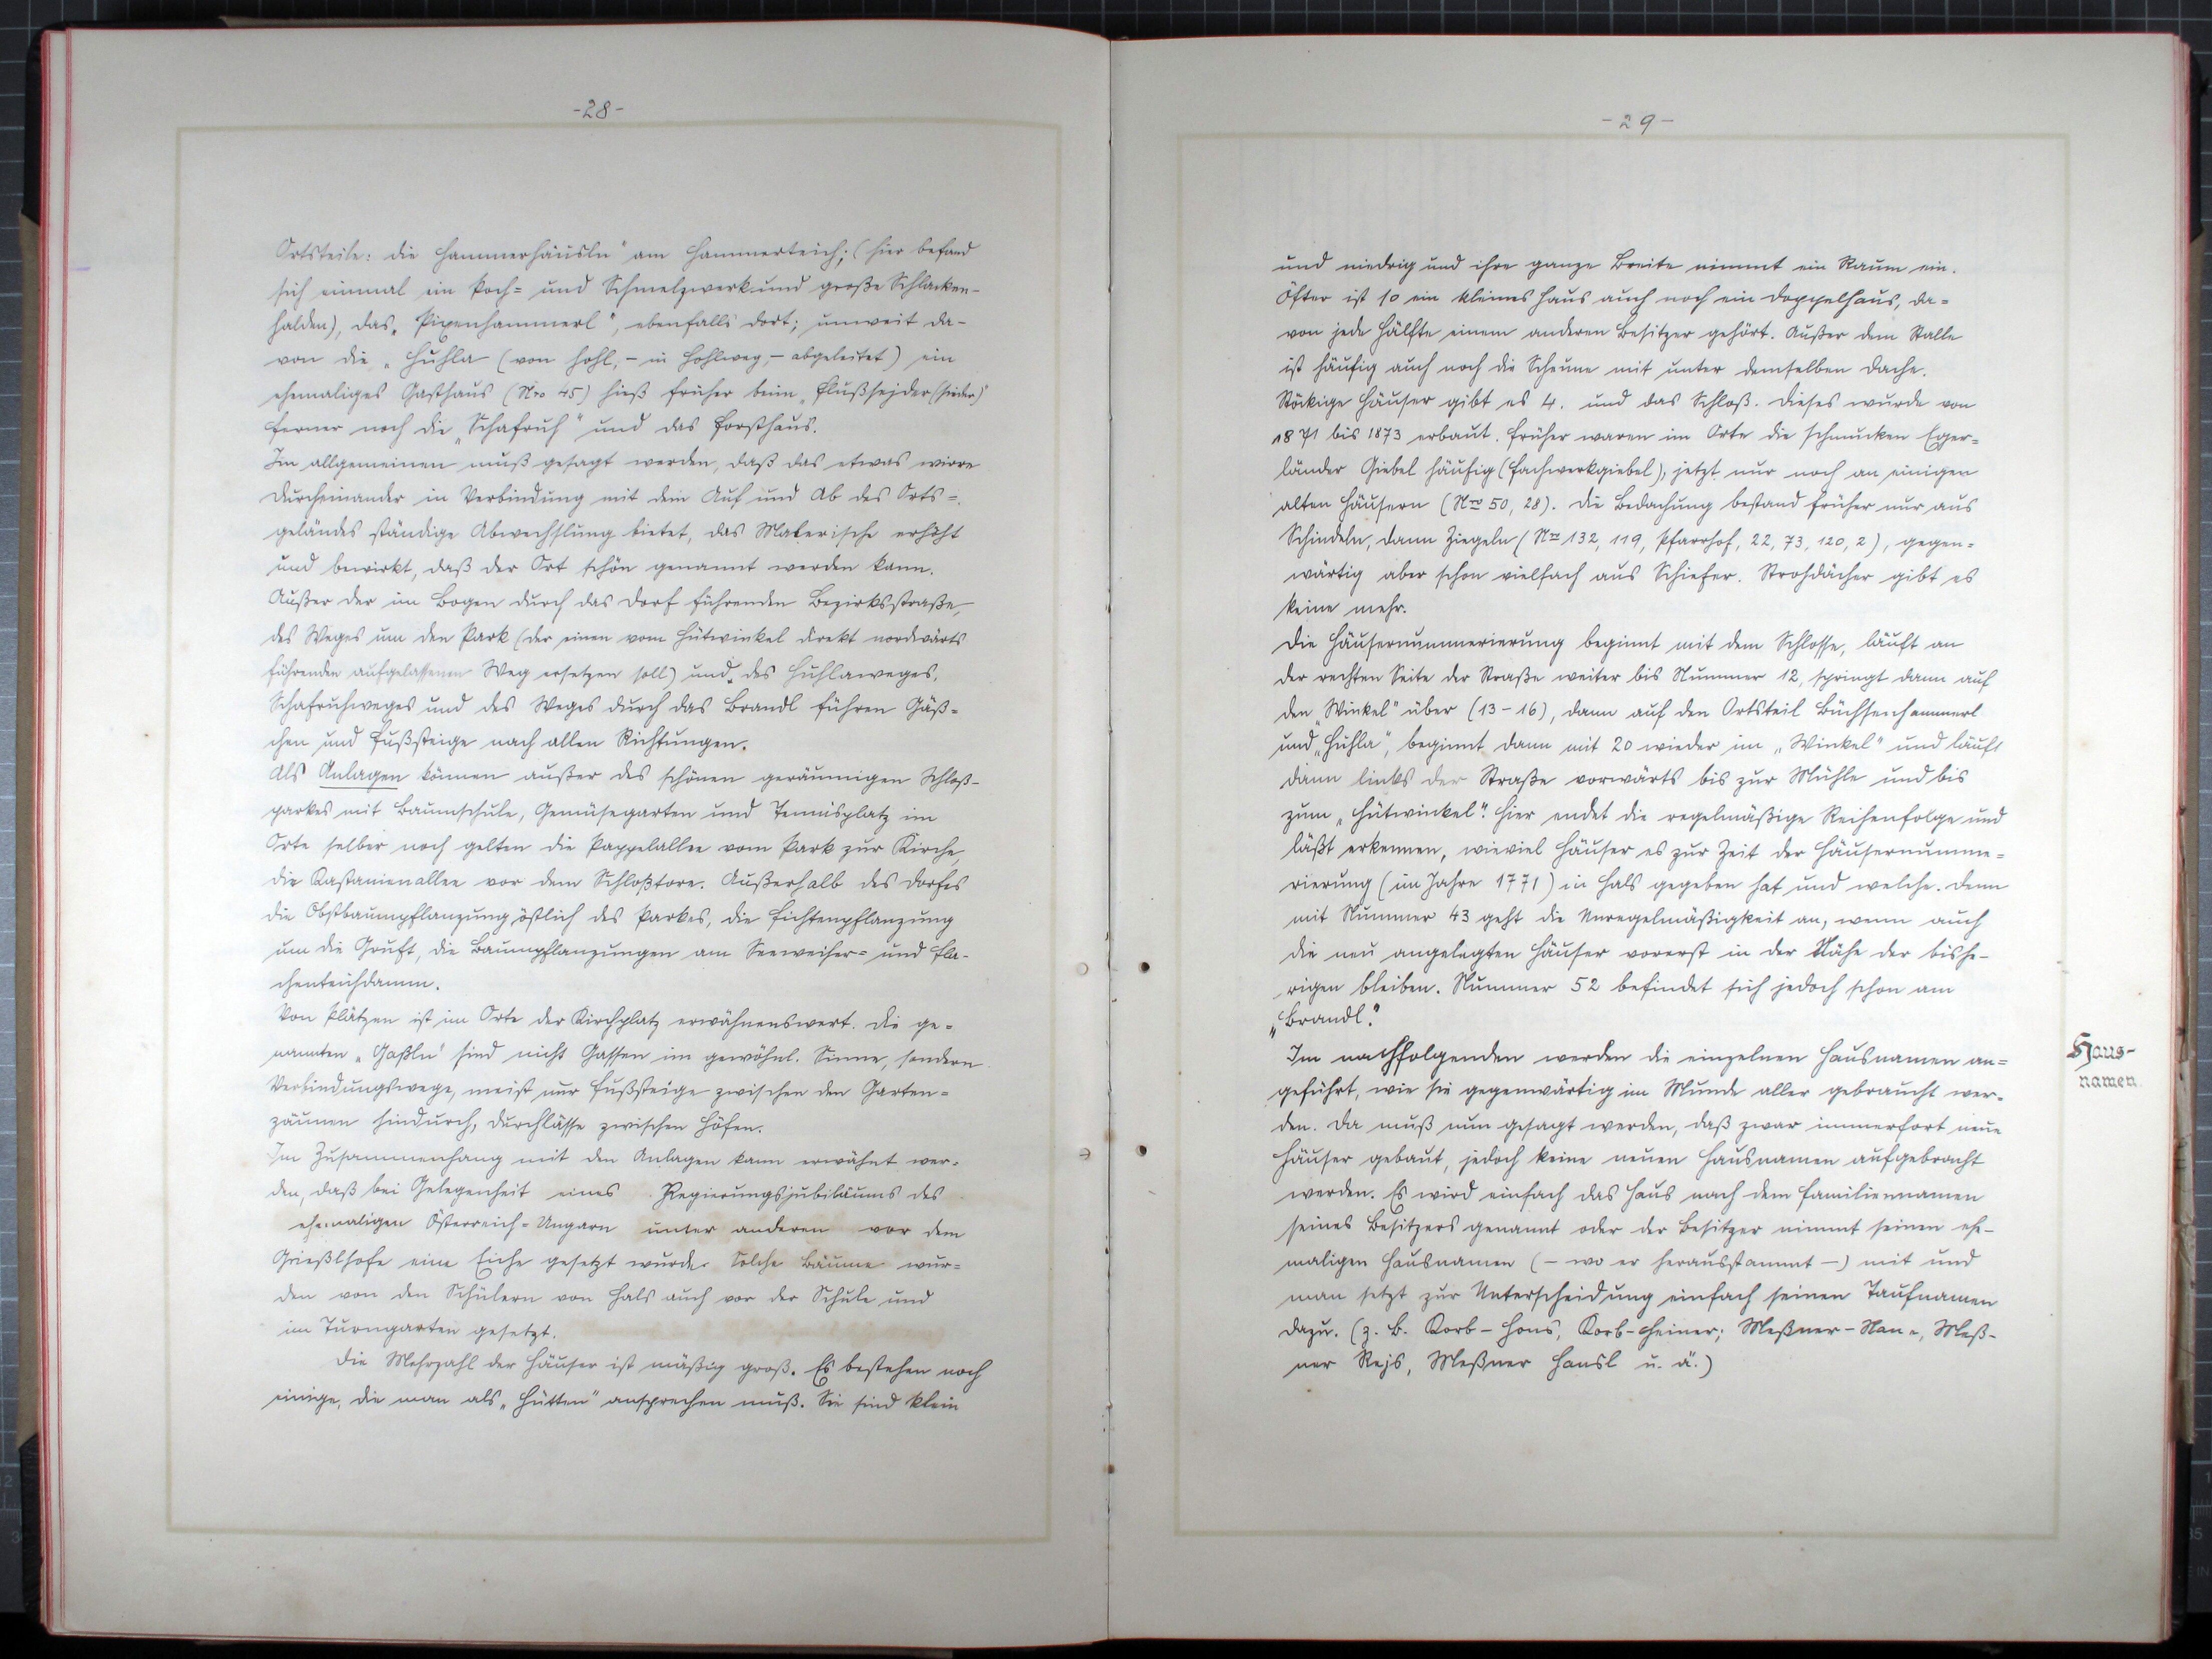 -28-
Ortsteile: die Hammerhäusln" am Hammerteich; (hier befand
sich einmal ein Poch= und Schmelzwerk und große Schlacken-
halden), das „Pixenhammerl", ebenfalls dort; unweit da-
von die „Huhla (von hohl, - in Hohlweg, - abgeleitet) ein
ehemaliges Gasthaus (Nro 45) hieß früher beim „Flußsejder (sieder)"
ferner noch die „Schafruh" und das Forsthaus.
Im allgemeinen muß gesagt werden, daß das etwas wirre
Durcheinander in Verbindung mit dem Auf und Ab des Orts=
geländes ständige Abwechslung bietet, das Malerische erhöht
und bewirkt, daß der Ort schön genannt werden kann.
Außer der im Bogen durch das Dorf führenden Bezirksstraße,
des Weges um den Park (der einen vom Hütwinkel direkt nordwärts
führenden aufgelassenen Weg ersetzen soll) und des Huhlaweges,
Schafruhweges und des Weges durch das Brandl führen Gäß=
chen und Fußsteige nach allen Richtungen.
Als Anlagen können außer des schönen geräumigen Schloß-
parkes mit Baumschule, Gemüsegarten und Tennisplatz im
Orte selber noch gelten die Pappelallee vom Park zur Kirche,
die Kastanienallee vor dem Schloßtore. Außerhalb des Dorfes
die Obstbaumpflanzung östlich des Parkes, die Fichtenpflanzung
um die Gruft, die Baumpflanzungen am Seeweiher= und Fla-
chenteichdamm.
Von Plätzen ist im Orte der Kirchplatz erwähnenswert. Die ge=
nannten „Gaßln" sind nicht Gassen im gewöhnl. Sinne, sondern
Verbindungswege, meist nur Fußsteige zwischen den Garten=
zäunen hindurch, Durchlässe zwischen Höfen.
Im Zusammenhang mit den Anlagen kann erwähnt wer=
den, daß bei Gelegenheit eines Regierungsjubiläums des
ehemaligen Österreich=Ungarn unter anderen vor dem
Grießlhofe eine Eiche gesetzt wurde. Solche Bäume wur=
den von den Schülern von Hals auch vor der Schule und
im Turngarten gesetzt.
Die Mehrzahl der Häuser ist mäßig groß. Es bestehen noch
einige, die man als „Hütten" ansprechen muß. Sie sind klein
-29-
und niedrig und ihre ganze Breite nimmt ein Raum ein.
Öfter ist so ein kleines Haus auch noch ein Doppelhaus, da=
von jede Hälfte einem anderen Besitzer gehört. Außer dem Stalle
ist häufig auch noch die Scheune mit unter demselben Dache.
Stöckige Häuser gibt es 4. und das Schloß. Dieses wurde von
1871 bis 1873 erbaut. Früher waren im Orte die schmucken Eger=
länder Giebel häufig (Fachwerkgiebel), jetzt nur noch an einigen
alten Häusern (Nro 50, 28). Die Bedachung bestand früher nur aus
Schindeln, dann Ziegeln (Nro 132, 119, Pfarrhof, 22, 73, 120, 2), gegen=
wärtig aber schon vielfach aus Schiefer. Strohdächer gibt es
keine mehr.
Die Häusernummerierung beginnt mit dem Schlosse, läuft an
der rechten Seite der Straße weiter bis Nummer 12, springt dann auf
den „Winkel" über (13-16), dann auf den Ortsteil Büchsenhammerl
und „Huhla", beginnt dann mit 20 wieder im „Winkel" und läuft
dann links der Straße vorwärts bis zur Mühle und bis
zum „Hütwinkel". Hier endet die regelmäßige Reihenfolge und
läßt erkennen, wieviel Häuser es zur Zeit der Häusernumme=
rierung (im Jahre 1771) in Hals gegeben hat und welche. Denn
mit Nummer 43 geht die Unregelmäßigkeit an, wenn auch
die neu angelegten Häuser vorerst in der Nähe der bishe-
rigen bleiben. Nummer 52 befindet sich jedoch schon am
„Brandl."
Im nachfolgenden werden die einzelnen Hausnamen an=
geführt, wie sie gegenwärtig im Munde aller gebraucht wer=
den. Da muß nun gesagt werden, daß zwar immerfort neue
Häuser gebaut, jedoch keine neuen Hausnamen aufgebracht
werden. Es wird einfach das Haus nach dem Familiennamen
seines Besitzers genannt oder der Besitzer nimmt seinen ehe-
maligen Hausnamen (- wo er herausstammt -) mit und
man setzt zur Unterscheidung einfach seinen Taufnamen
dazu. (z. B. Korb-Hons, Korb-Heiner; Meßner-Nan-, Meß-
ner Rejs, Meßner Hansl u. ä.)
Haus-
namen.